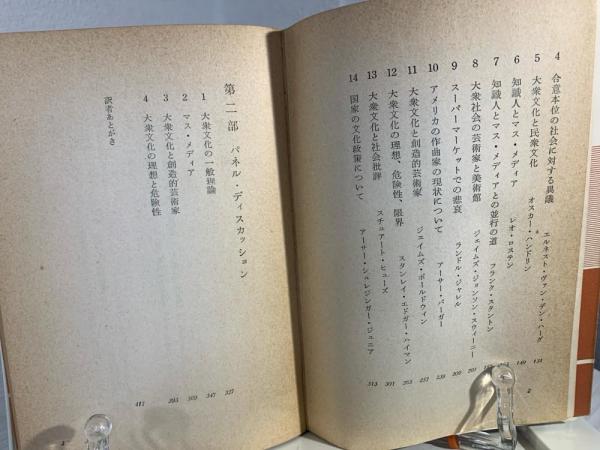 4 合意本位の社会に対する異議 エルネスト・ヴァン・デン・ハーグ 133
5 大衆文化と民衆文化 オスカー・ハンドリン 149
6 知識人とマス・メディア レオ・ロステン
7 知識人とマス・メディアとの並行の道 フランク・スタントン
8 大衆社会の芸術家と美術館 ジェイムズ・ジョンソン・スウィーニー
9 スーパーマーケットでの悲哀 ランドル・ジャレル 201
10 アメリカの作曲家の現状について アーサー・バーガー 209
11 大衆文化と創造的芸術家 ジェイムズ・ボールドウィン 257
12 大衆文化の理想、危険性、限界 スタンレイ・エドガー・ハイマン
13 大衆文化と社会批評 スチュアート・ヒューズ 301
14 国家の文化政策について アーサー・シュレジンガー・ジュニア 313
2
第二部 パネル・ディスカッション
1 大衆文化の一般理論 327
2 マス・メディア 347
3 大衆文化と創造的芸術家 369
4 大衆文化の理想と危険性 393
訳者あとがき 411